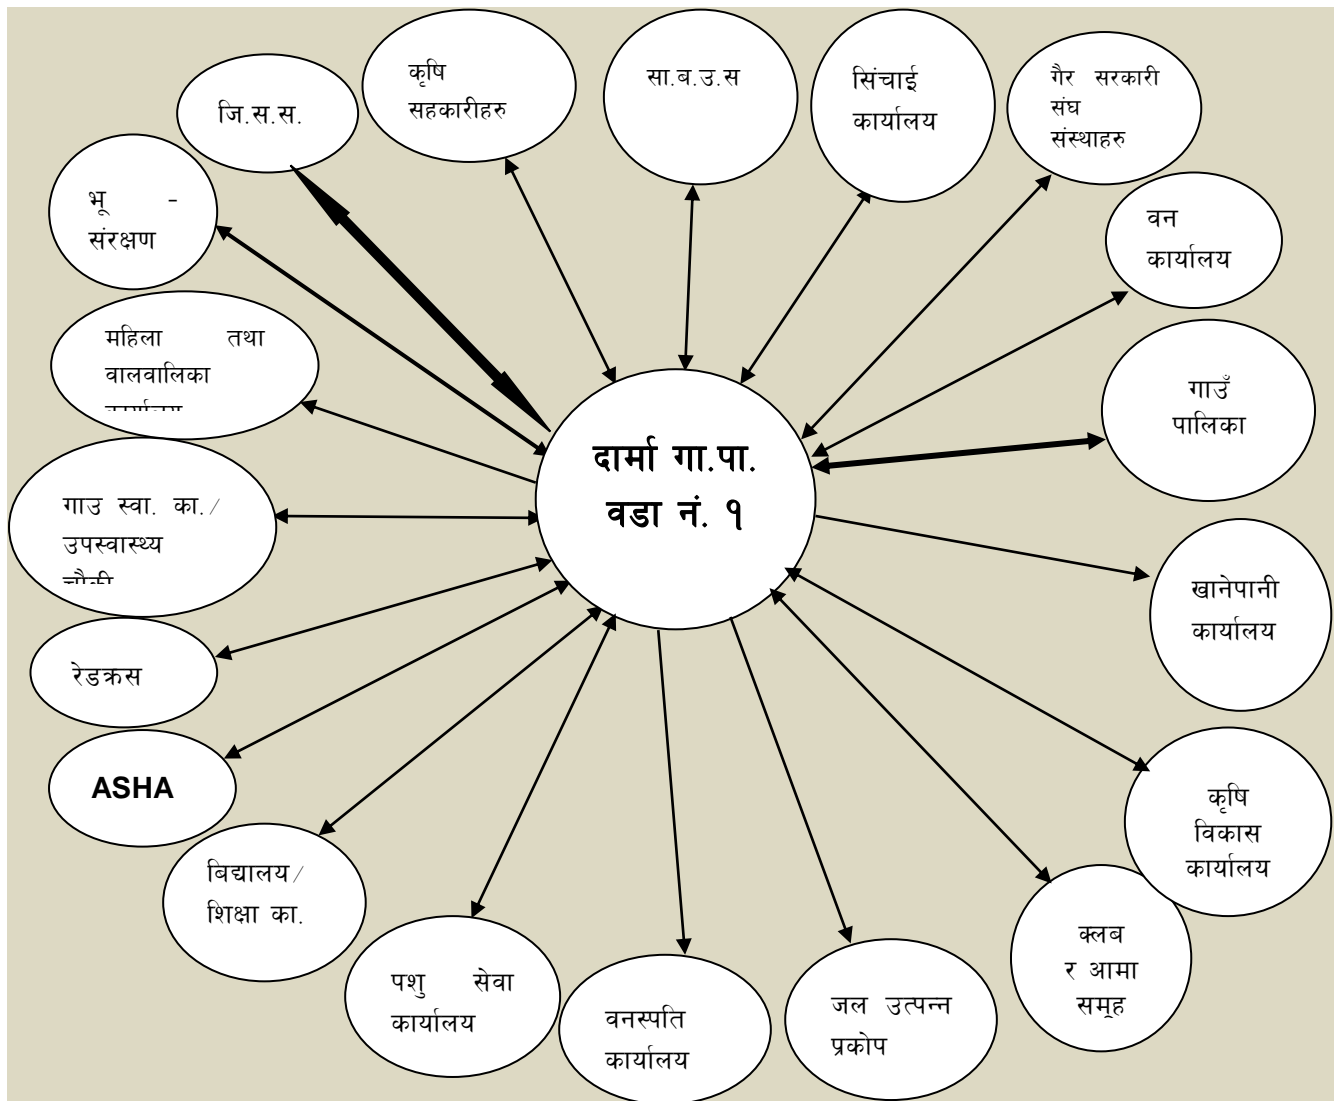 जि.स.स.
कृषि
सहकारीहरु
सा.ब.उ.स
सिंचाई
कार्यालय
गैर सरकारी
संघ
संस्थाहरु
वन
कार्यालय
गाउँ
पालिका
खानेपानी
कार्यालय
कृषि
विकास
कार्यालय
क्लब
र आमा
समूह
जल उत्पन्न
प्रकोप
वनस्पति
कार्यालय
पशु सेवा
कार्यालय
बिद्यालय/
शिक्षा का.
ASHA
रेडक्रस
गाउ स्वा. का./
उपस्वास्थ्य
चौकी
महिला तथा
वालवालिका
कार्यालय
भू -
संरक्षण
दार्मा गा.पा.
वडा नं. १